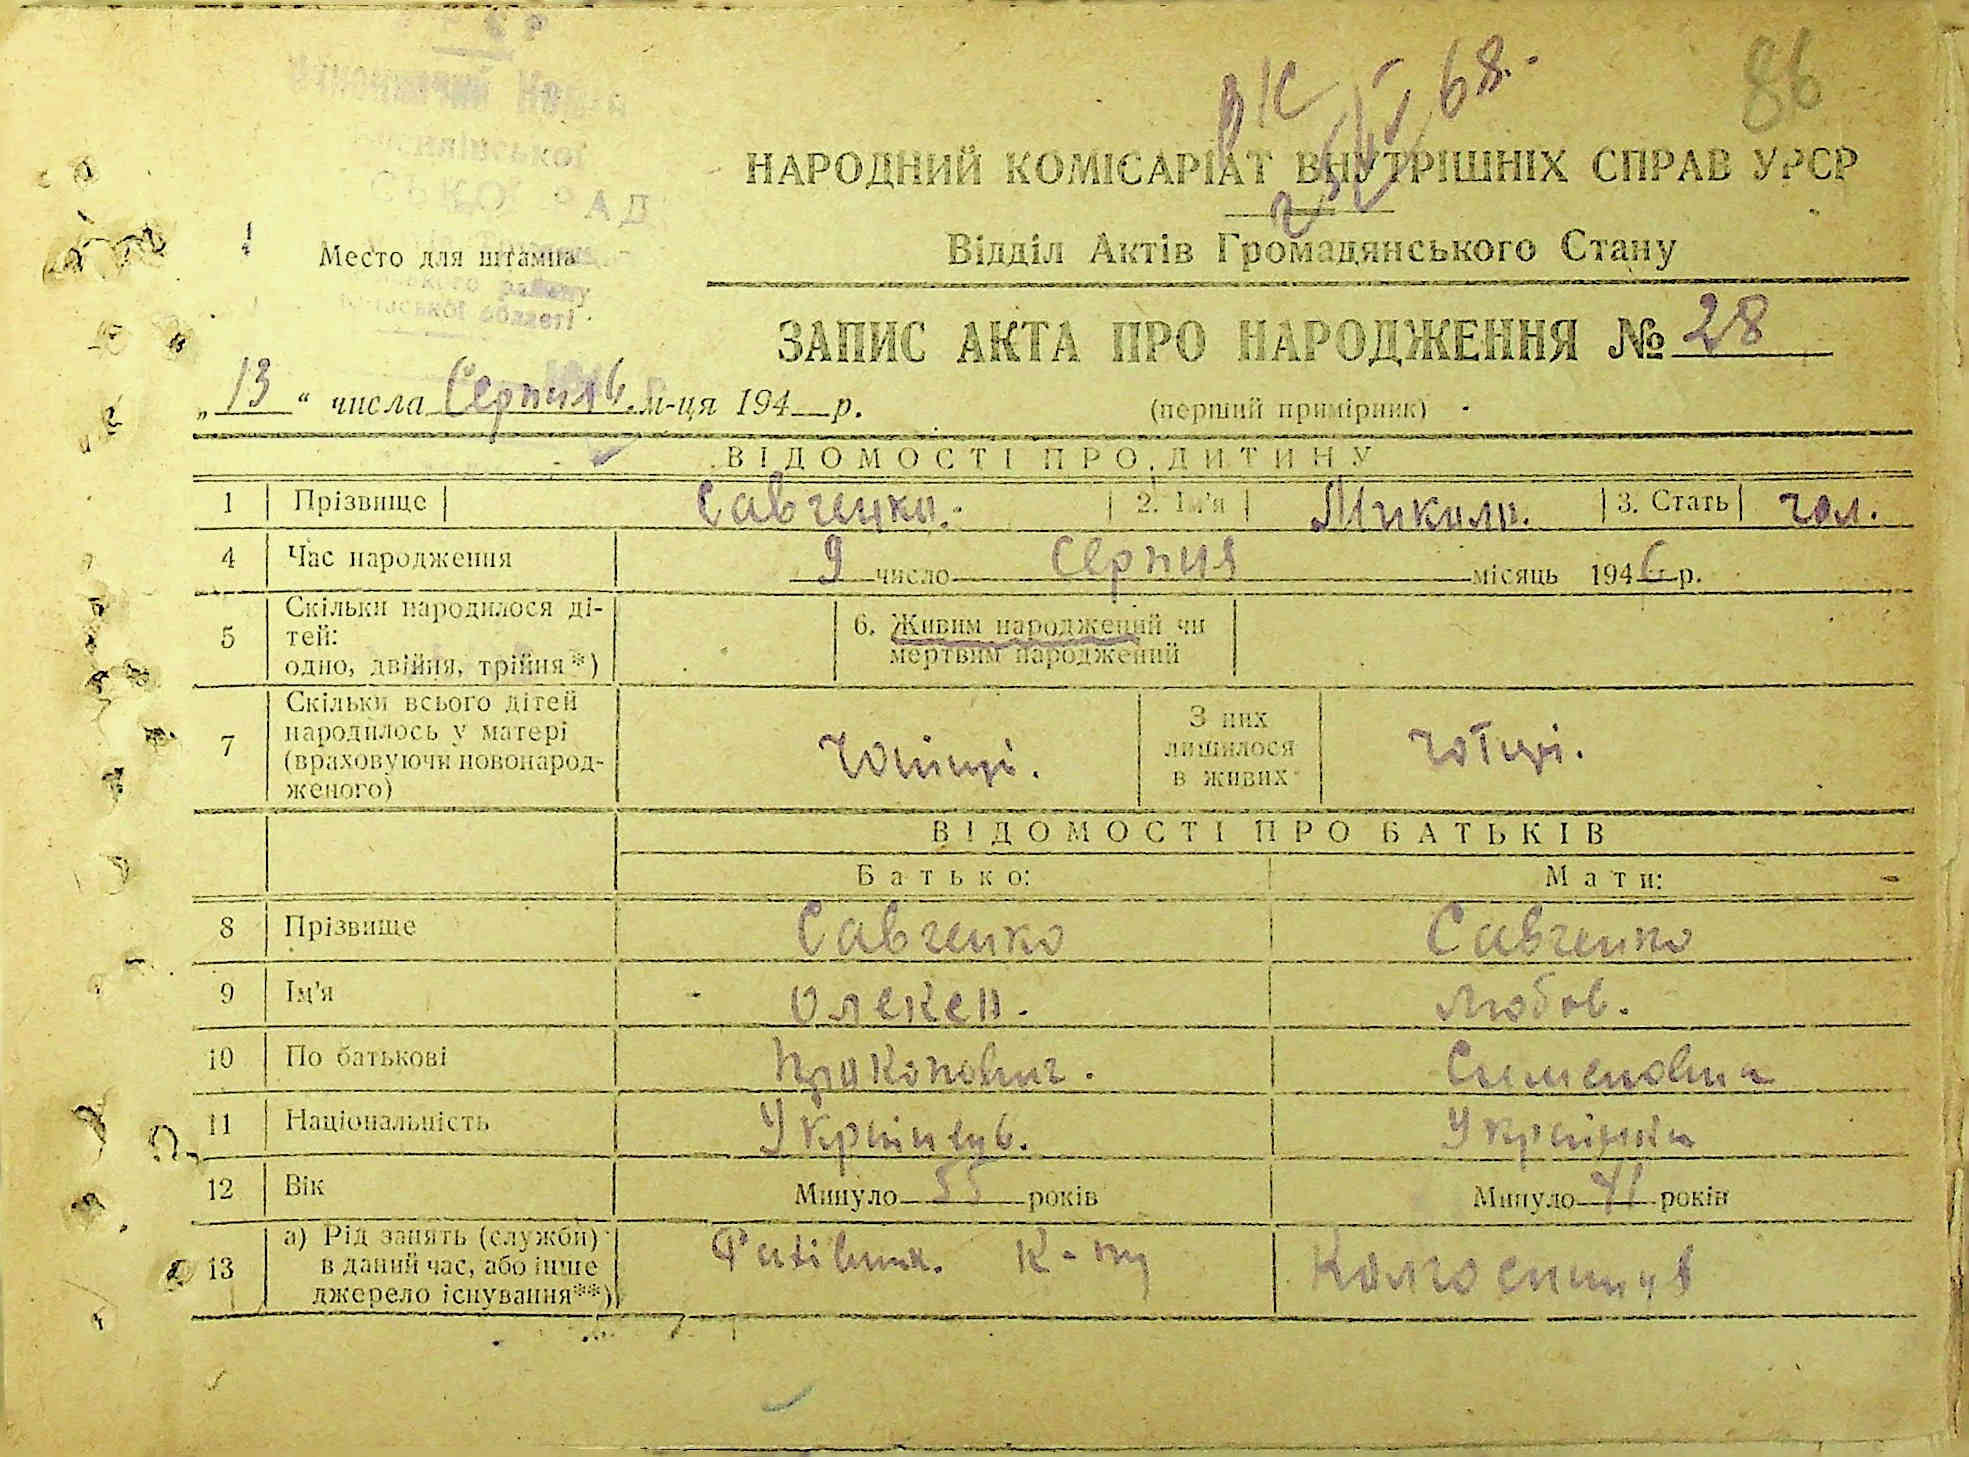 86
вк
68.
НАРОДНИЙ КОМІСАРІАТ ВНУТРІШНІХ СПРАВ УРСР
Відділ Актів Громадянського Стану
Место для штампа
району
області
ЗАПИС АКТА ПРО НАРОДЖЕННЯ № 28
„13“ числа Серпня 6 м-ця 194 р.
(перший примірник)
ВІДОМОСТІ ПРО ДИТИНУ
1 Прізвище Савченко. 2. Ім'я Микола. 3. Стать чол.
4 Час народження 9 число Серпня місяць 1946 р.
5 Скільки народилося ді-
тей:
одно, двійня, трійня*)
6. Живим народжений чи
мертвим народжений
7 Скільки всього дітей
народилось у матері
(враховуючи новонарод-
женого)
З них
лишилося
в живих
ВІДОМОСТІ ПРО БАТЬКІВ
Батько: Мати:
8 Прізвище Савченко Савченко
9 Ім'я Олексей. Любов.
10 По батькові Прокопович. Семеновна
11 Національність Українець. Українка
12 Вік Минуло 55 років Минуло 41 років
13 а) Рід занять (служби)
в даний час, або інше
джерело існування**)
К-пу
Колгоспниця